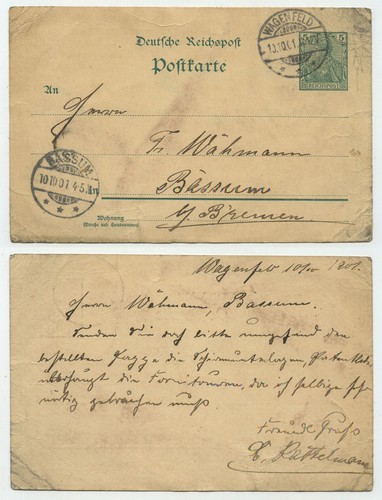 Deutsche Reichspost
Postkarte
WAGENFELD
10.10.01
5 5
REICHSPOST
An
Herrn
Fr. Wähmann
BASSUM
10 10 01 4-5.Nn
Bassum
b/ Bremen
Wohnung
(Straße und Hausnummer)
Wagenfeld 10/10 1901.
Herrn Wähmann, Bassum.
Senden Sie doch bitte umgehend den
bestellten die
überhaupt die Fornituren, da ich selbige sehr
nötig gebrauchen muß
Freundl Gruß
Rattelmann